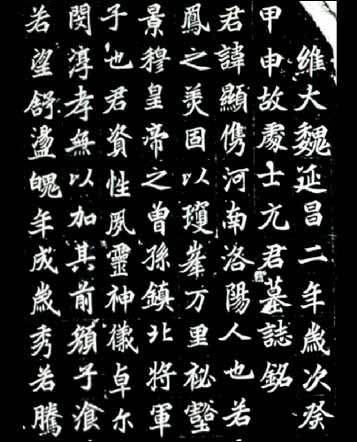 維大魏延昌二年歲次癸
甲申故處士元君墓誌銘
君諱顯儁河南洛陽人也若
鳳之美固以瓊峯万里祕壑
景穆皇帝之曾孫鎮北將軍
子也君資性夙靈神儀卓尒
閔淳孝無以加其前顏子湌
若望舒盪魄年成歲秀若騰